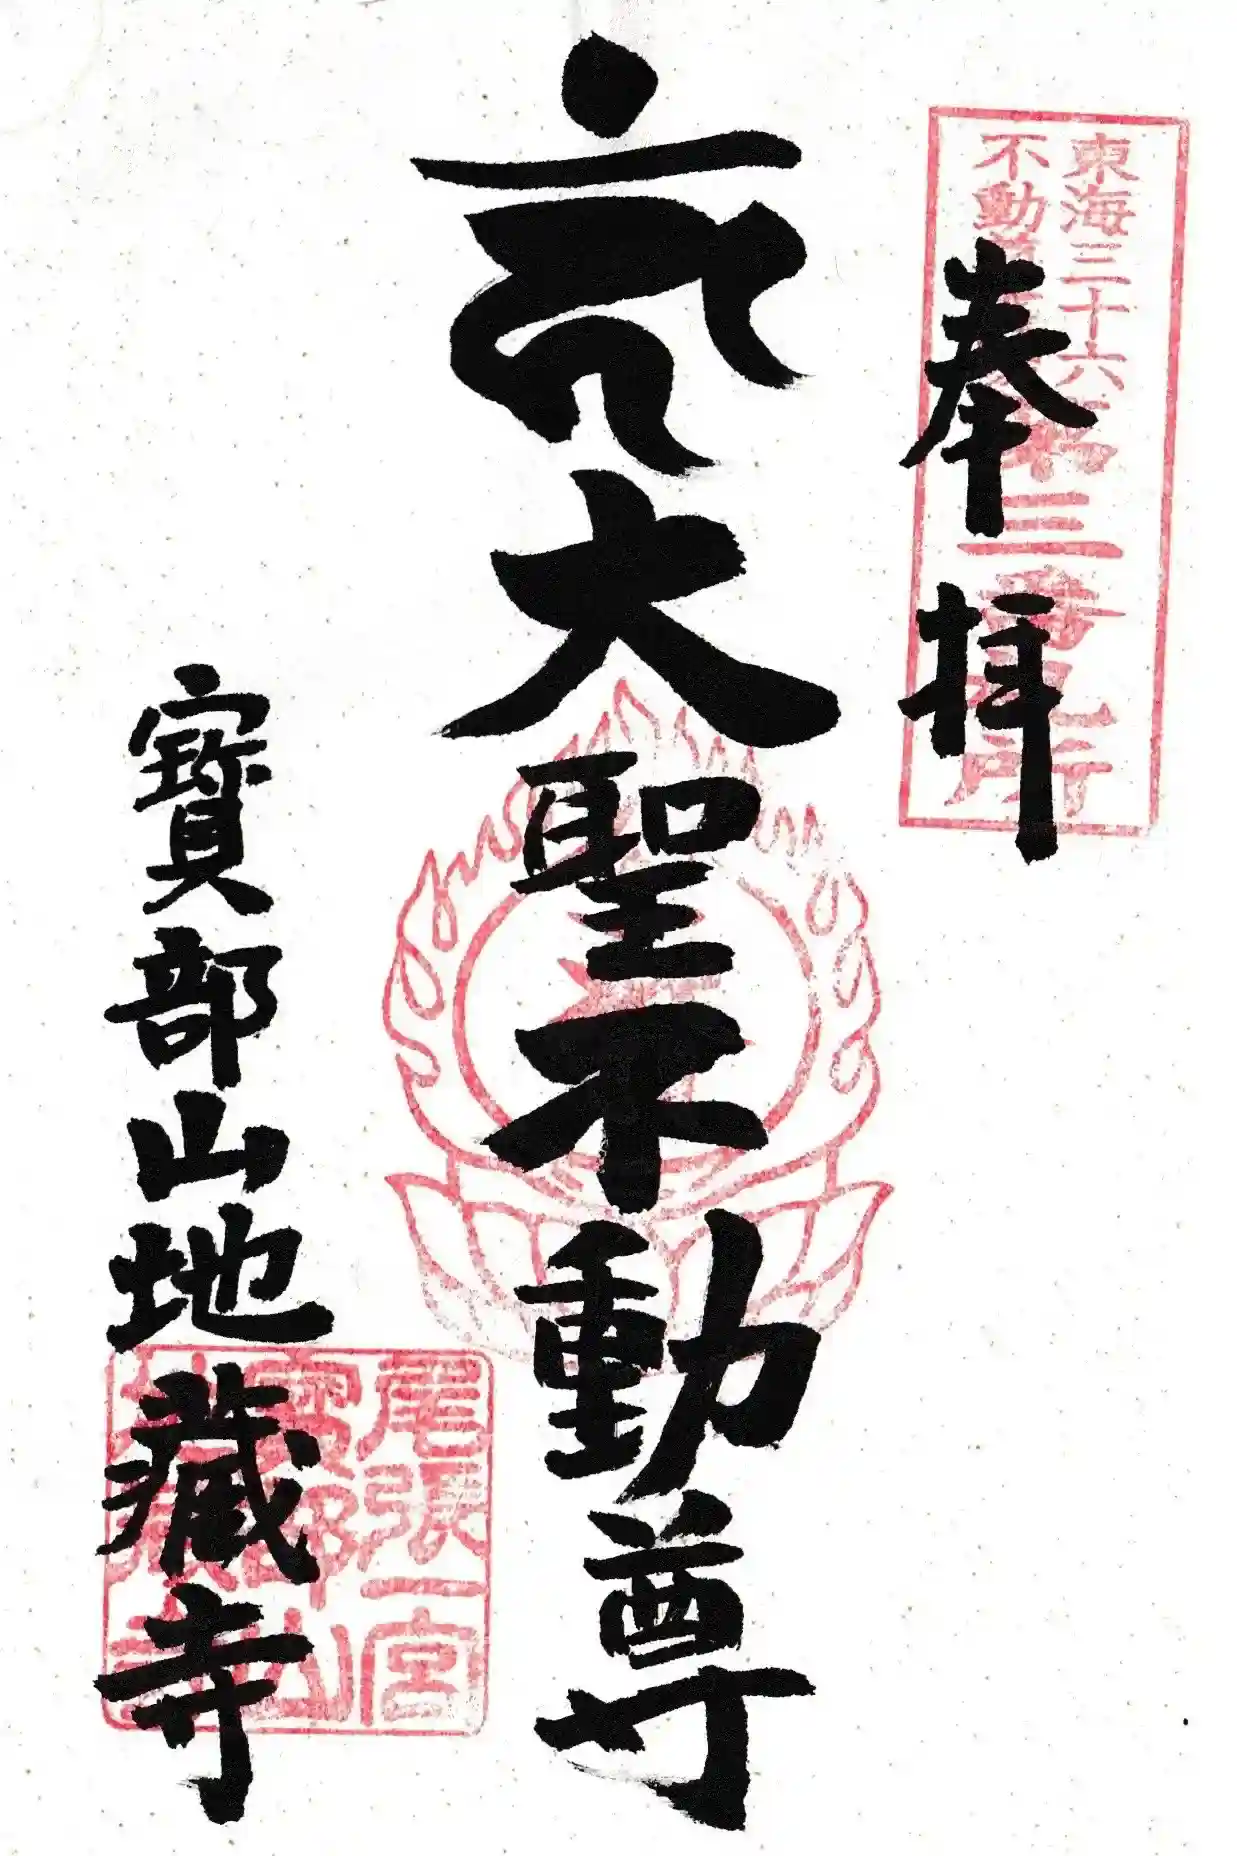 奉拝
東海三十六
不動尊
第三番札所
𑖮𑖯𑖽大聖不動尊
寶部山地藏寺
尾張一宮
寶部山
地藏寺